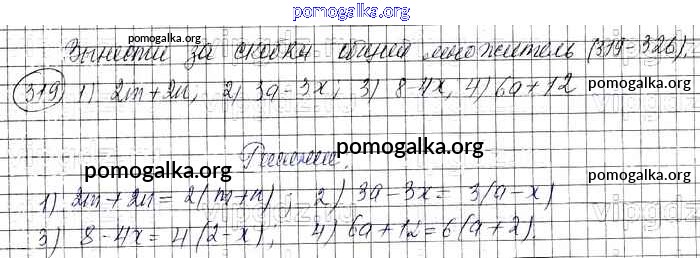 pomogalka.org
Вынести за скобки общий множитель (319-326).
319) 1) 2m+2n; 2) 3a-3x; 3) 8-4x, 4) 6a+12 pomogalka.org
Решение.
pomogalka.org pomogalka.org
1) 2m+2n=2(m+n); 2) 3a-3x= 3(a-x)
3) 8-4x=4(2-x); 4) 6a+12=6(a+2).
pomogalka.org